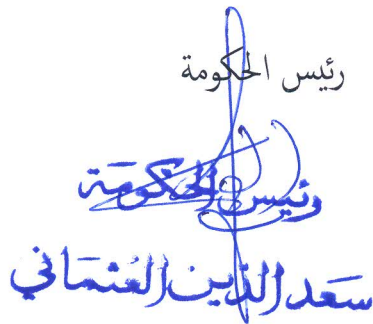 رئيس الحكومة
رئيس الحكومة
سعد الدين العثماني